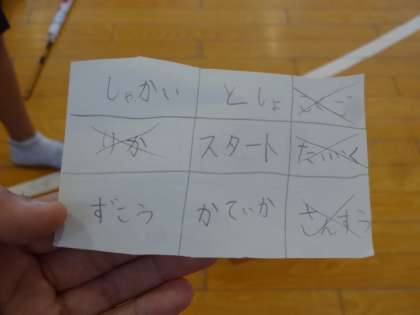 しゃかい としょ こくご
りか スタート たいいく
ずこう かていか さんすう